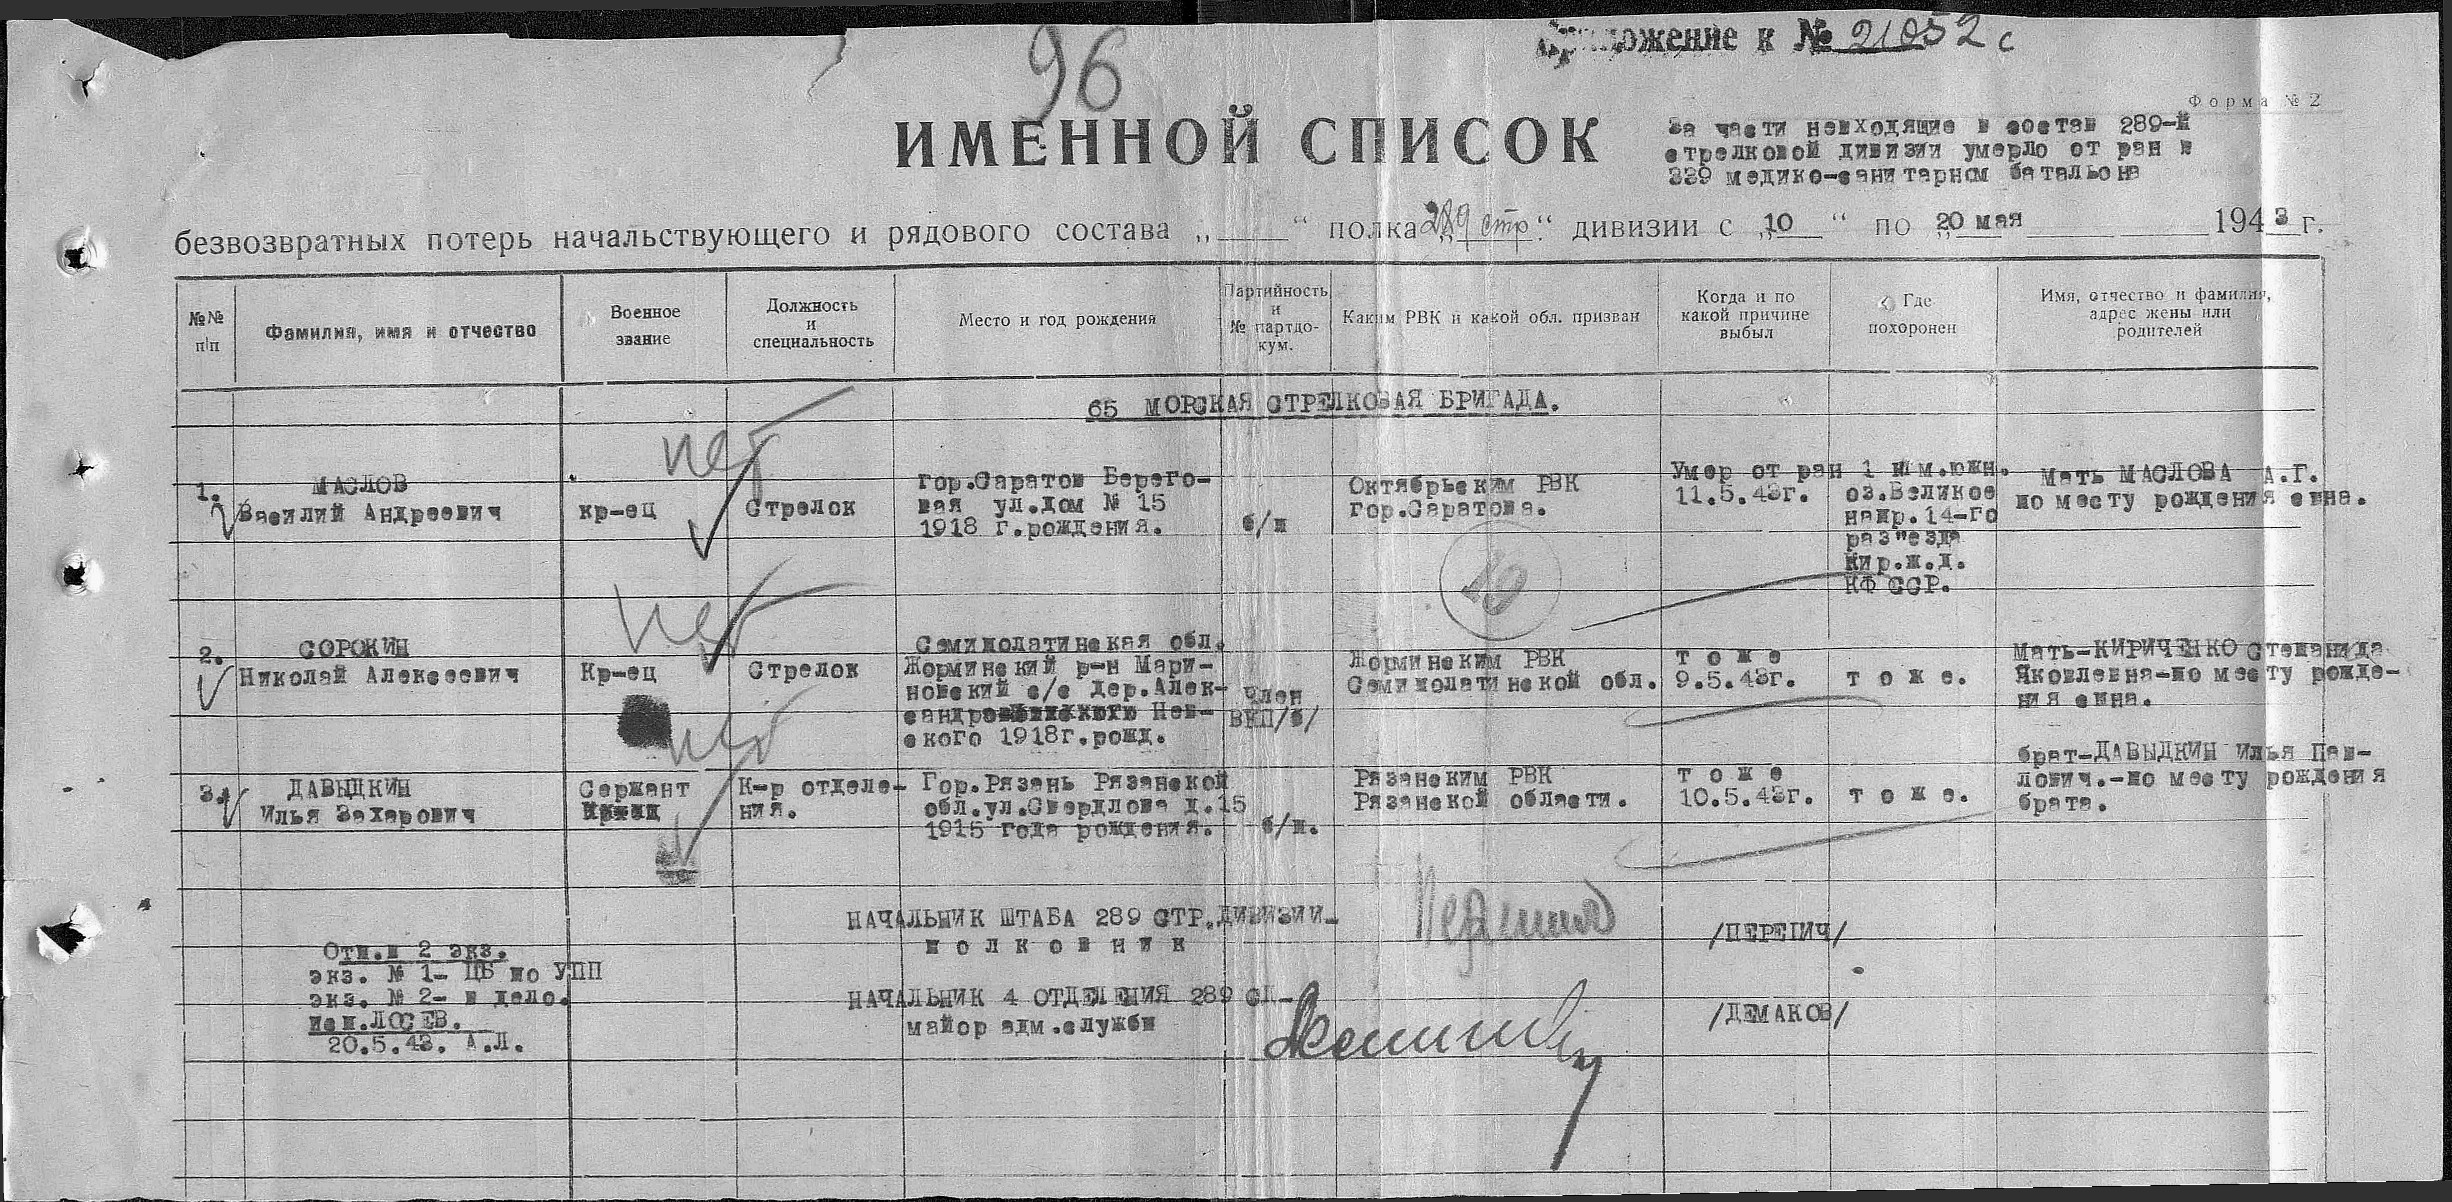 96
Приложение к № 21052 с
Форма № 2
ИМЕННОЙ СПИСОК
За части невходящие в состав 289-й
стрелковой дивизии умерло от ран в
339 медико-санитарном батальоне
безвозвратных потерь начальствующего и рядового состава „ “ полка „289 стр.“ дивизии с „10 “ по „20 мая 1943 г.
№№ п|п
Фамилия, имя и отчество
Военное звание
Должность и специальность
Место и год рождения
Партийность и № партдокум.
Каким РВК и какой обл. призван
Когда и по какой причине выбыл
Где похоронен
Имя, отчество и фамилия, адрес жены или родителей
65 МОРСКАЯ СТРЕЛКОВАЯ БРИГАДА.
нет
1.
МАСЛОВ
Василий Андреевич
кр-ец
Стрелок
гор.Саратов Берего-
вая ул.дом № 15
1918 г.рождения.
б/п
Октябрьским РВК
гор.Саратова.
Умер от ран
11.5.43г.
1 км.южн.
оз.Великое
напр.14-го
раз"езда
Кир.ж.д.
КФ ССР.
Мать МАСЛОВА А.Г.
по месту рождения сына.
10
нет
2.
СОРОКИН
Николай Алексеевич
Кр-ец
Стрелок
Семиполатинская обл.
Жорминский р-н Мари-
новский с/с дер.Алек-
сандро Нев-
ского 1918г.рожд.
Член
ВКП/б/
Жорминским РВК
Семиполатинской обл.
т о ж е
9.5.43г.
т о ж е.
Мать-КИРИЧЕНКО Степанида
Яковлевна-по месту рожде-
ния сына.
нет
3.
ДАВЫДКИН
Илья Захарович
Сержант
К-р отделе-
ния.
Гор.Рязань Рязанской
обл.ул.Свердлова д.15
1915 года рождения.
б/п.
Рязанским РВК
Рязанской области.
т о ж е
10.5.43г.
т о ж е.
брат-ДАВЫДКИН Илья Пав-
лович.-по месту рождения
брата.
НАЧАЛЬНИК ШТАБА 289 СТР.ДИВИЗИИ-
п о л к о в н и к
/ПЕРЕПИЧ/
НАЧАЛЬНИК 4 ОТДЕЛЕНИЯ 289 СД-
майор адм.службы
/ДЕМАКОВ/
Отп.в 2 экз.
экз. № 1- ЦБ по УПП
экз. № 2- в дело.
исп.ЛОСЕВ.
20.5.43. А.Л.